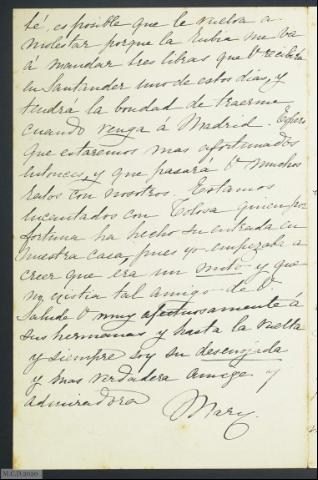 té, es posible que le vuelva a
molestar porque la Rubia me va
á mandar tres libras que V. recibirá
en Santander uno de estos dias, y
tendra la bondad de traerme
cuando venga á Madrid. Espero
que estaremos mas afortunados
entonces, y que pasará V. muchos
ratos con nosotros. Estamos
encantados con Tolosa quien por
fortuna ha hecho su entrada en
nuestra casa, pues yo empezaba a
creer que era un mito y que
no existia tal amigo de V.
Salude V. muy afectuosamente á
sus hermanas y hasta la vuelta
y siempre soy su descuidada
y mas verdadera amiga y
admiradora
Mary.
M.C.D.2020